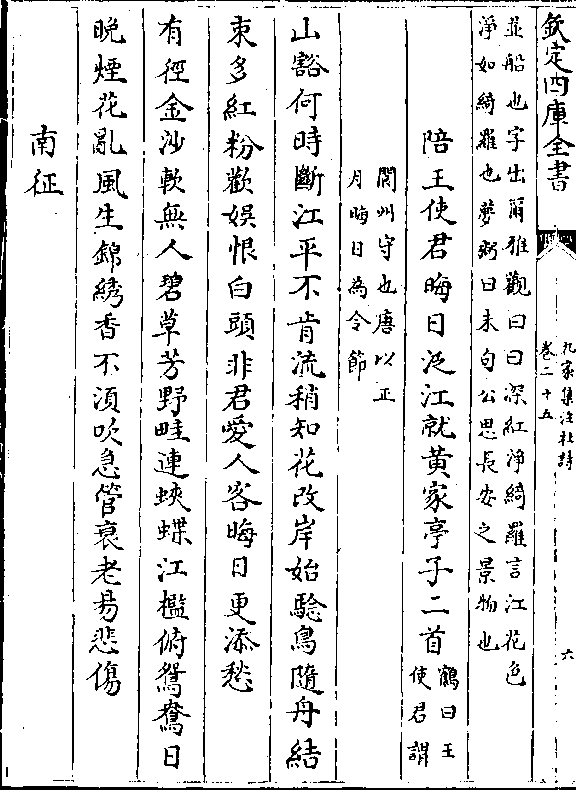 欽定四庫全書
九家集注杜詩
卷二十五
六
並船也字出爾雅觀曰曰深紅淨綺羅言江花色
淨如綺羅也夢弼曰末句公思長安之景物也
陪王使君晦日泛江就黃家亭子二首
鶴曰王
使君謂
閬州守也唐以正
月晦日為令節
山豁何時斷江平不肯流稍知花改岸始驗鳥隨舟結
束多紅粉歡娱恨白頭非君愛人客晦日更添愁
有徑金沙軟無人碧草芳野畦連蛺蝶江檻俯鴛鴦日
晚煙花亂風生錦綉香不湏吹急管衰老易悲傷
南征